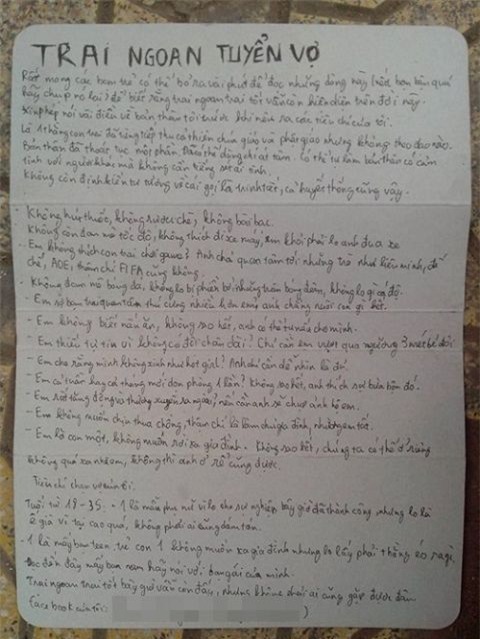 TRAI NGOAN TUYỂN VỢ
Rất mong các bạn trẻ có thể bỏ ra vài phút để đọc những dòng này
hãy chụp nó lại để biết rằng trai ngoan trai tốt vẫn còn hiện diện trên đời này.
Xin phép nói vài điều về bản thân tôi trước khi nêu ra các tiêu chí của tôi.
Là 1 thằng con trai đã từng tiếp thu cả thiên chúa giáo và phật giáo nhưng không theo đạo nào.
Bản thân đã thoát tục một phần. có thể tự làm bản thân có cảm
tình với người khác mà không cần tiếng sét ái tình.
Không còn định kiến tư tưởng về cái gọi là trinh tiết, cả huyết thống cũng vậy.
- Không hút thuốc, không rượu chè, không bài bạc.
Không còn đam mê tốc độ, không thích đi xe máy, em khỏi phải lo anh đua xe
- Em không thích con trai chơi game? Anh chả quan tâm tới những trò như liên minh, đế
chế, AOE, thậm chí FIFA cũng không.
- Không đam mê bóng đá, không lo bị phản bội những trận bóng đêm, không lo gì cá độ.
- Em sợ bạn trai quan tâm thú cưng nhiều hơn em? anh chẳng nuôi con gì hết.
- Em không biết nấu ăn, không sao hết, anh có thể tự nấu cho mình.
- Em thiếu tự tin vì không có đôi chân dài? Chỉ cần em vượt qua ngưỡng 3 mét bẻ đôi
- Em cho rằng mình không xinh như hot girl? Anh chỉ cần dễ nhìn là đủ.
- Em cả tuần hay cả tháng mới dọn phòng 1 lần? Không sao hết, anh thích sự bừa bộn đó.
- Em rớt tùng động và thường xuyên xa người, nên cần anh sẽ chụp ảnh hộ em.
- Em không muốn chịu thua chồng, thậm chí là làm chủ gia đình, nhường em tất.
- Em là con một, không muốn rời xa gia đình. Không sao hết, chúng ta có thể ở riêng
không quá xa nhà em, không thì anh ở rể cũng được.
Tiêu chí chọn vợ của tôi.
Tuổi từ 18-35. - 1 là mẫu phụ nữ vì lo cho sự nghiệp bây giờ đã thành công, nhưng lo là
ế già vì tội cao quá, không phải ai cũng dám tán.
- 1 là mấy bạn teen, trẻ con 1 không muốn xa gia đình nhưng lo lấy phải thằng
Đọc đến đây mấy bạn nam hãy nói với bạn gái của mình.
Trai ngoan trai tốt bây giờ vẫn còn đấy, nhưng không phải ai cũng gặp được đâu
Facebook của tôi: